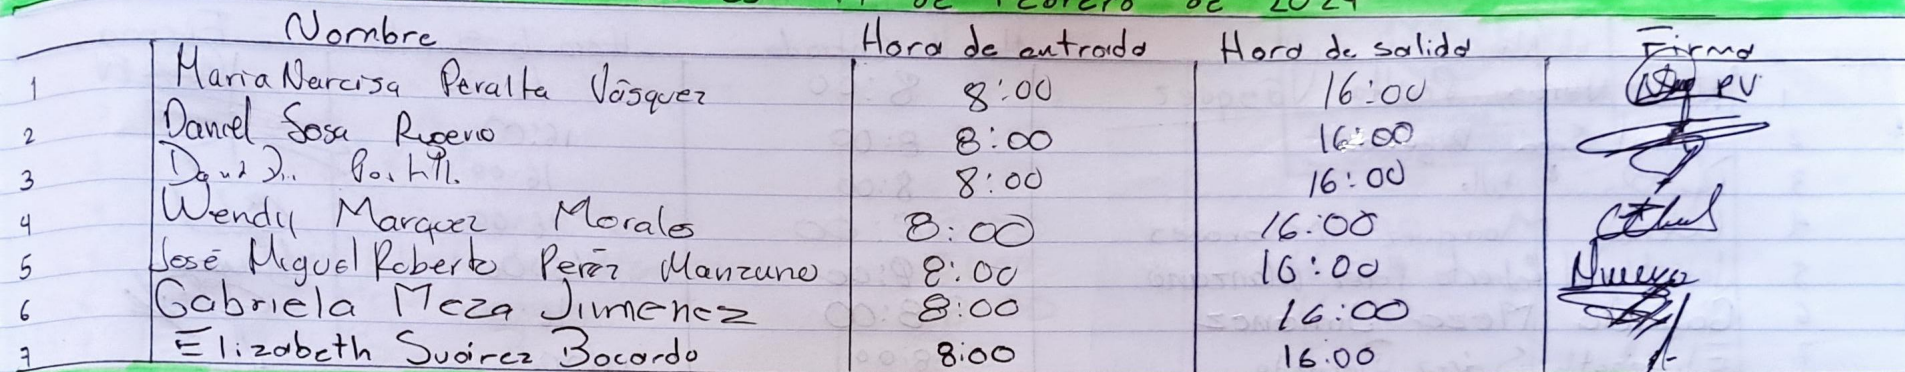 de Febrero de 2024
Nombre Hora de entrada Hora de salida Firma
1 Maria Narcisa Peralta Vásquez 8:00 16:00 PV
2 Daniel Sosa 8:00 16:00
3 David 8:00 16:00
4 Wendy Marquez Morales 8:00 16:00
5 José Miguel Roberto Peréz Manzano 8:00 16:00
6 Gabriela Meza Jimenez 8:00 16:00
7 Elizabeth Suárez Bocardo 8:00 16:00